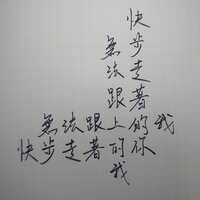 快步走著的你
無法跟上的我
無法跟上的我
快步走著的你